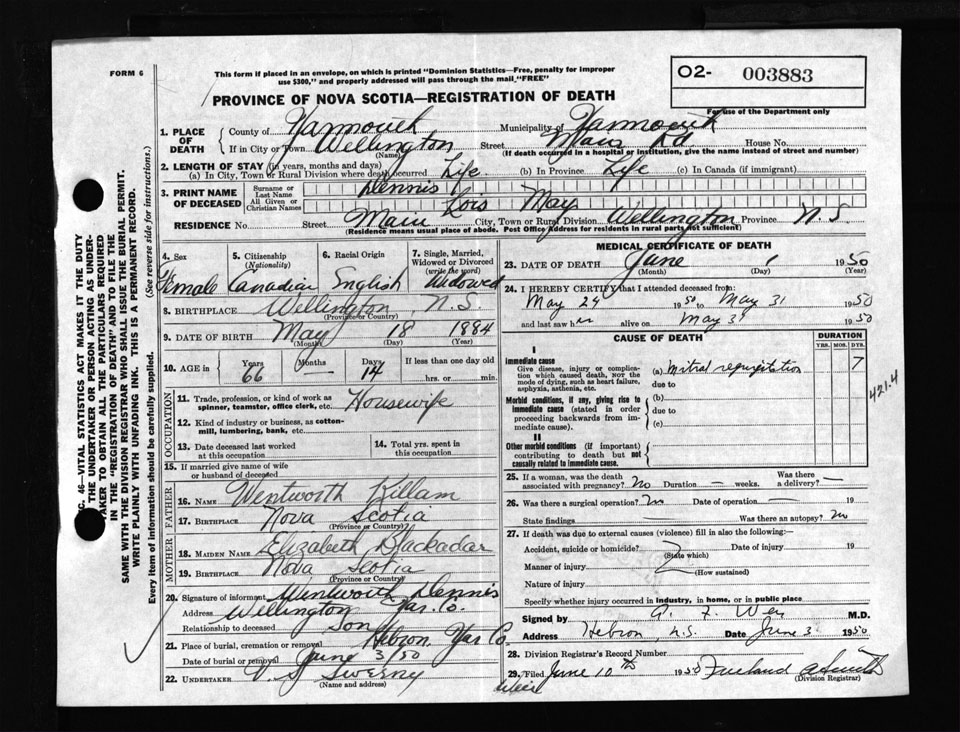 FORM 6
This form if placed in an envelope, on which is printed "Dominion Statistics—Free, penalty for improper
use $300," and properly addressed will pass through the mail "FREE"
O2- 003883
For use of the Department only
PROVINCE OF NOVA SCOTIA—REGISTRATION OF DEATH
1. PLACE OF DEATH
County of Yarmouth Municipality of Yarmouth
If in City or Town Wellington Street Main Rd House No.
(Name) (If death occurred in a hospital or institution, give the name instead of street and number)
2. LENGTH OF STAY (in years, months and days)
(a) In City, Town or Rural Division where death occurred Life (b) In Province Life (c) In Canada (if immigrant)
3. PRINT NAME OF DECEASED
Surname or Last Name Dennis
All Given or Christian Names Lois May
RESIDENCE No. Street Main City, Town or Rural Division Wellington Province N.S.
(Residence means usual place of abode. Post Office Address for residents in rural parts not sufficient)
4. Sex 5. Citizenship (Nationality) 6. Racial Origin 7. Single, Married, Widowed or Divorced (write the word)
Female Canadian English Widowed
8. BIRTHPLACE Wellington, N.S.
(Province or Country)
9. DATE OF BIRTH May 18 1884
(Month) (Day) (Year)
10. AGE in Years Months Days If less than one day old
66 14 hrs. or min.
OCCUPATION
11. Trade, profession, or kind of work as
spinner, teamster, office clerk, etc. Housewife
12. Kind of industry or business, as cotton-
mill, lumbering, bank, etc.
13. Date deceased last worked
at this occupation
14. Total yrs. spent in
this occupation
15. If married give name of wife
or husband of deceased
FATHER
16. NAME Wentworth Killam
17. BIRTHPLACE Nova Scotia
(Province or Country)
MOTHER
18. MAIDEN NAME Elizabeth Blackadar
19. BIRTHPLACE Nova Scotia
(Province or Country)
20. Signature of informant Wentworth Dennis
Address Wellington Yar. Co.
Relationship to deceased Son
21. Place of burial, cremation or removal Hebron, Yar Co
Date of burial or removal June 3/50
22. UNDERTAKER V. S. Sweeny
(Name and address)
MEDICAL CERTIFICATE OF DEATH
23. DATE OF DEATH June 1 1950
(Month) (Day) (Year)
24. I HEREBY CERTIFY that I attended deceased from:
May 24 1950 to May 31 1950
and last saw her alive on May 31 1950
CAUSE OF DEATH DURATION
YRS. MOS. DYS.
I
Immediate cause
Give disease, injury or complica-
tion which caused death, not the
mode of dying, such as heart failure,
asphyxia, asthenia, etc.
(a) Mitral regurgitation 7
due to
Morbid conditions, if any, giving rise to
immediate cause (stated in order
proceeding backwards from im-
mediate cause).
(b)
due to
(c)
II
Other morbid conditions (if important)
contributing to death but not
causally related to immediate cause.
421.4
25. If a woman, was the death
associated with pregnancy? No Duration — weeks. Was there
a delivery? —
26. Was there a surgical operation? No Date of operation — 19
State findings Was there an autopsy? No
27. If death was due to external causes (violence) fill in also the following:—
Accident, suicide or homicide? Date of injury 19
(State which)
Manner of injury
(How sustained)
Nature of injury
Specify whether injury occurred in industry, in home, or in public place
Signed by M.D.
Address Hebron, N.S. Date June 3 1950
28. Division Registrar's Record Number
29. Filed June 10th 1950
(Division Registrar)
SEC. 46—VITAL STATISTICS ACT MAKES IT THE DUTY
OF THE UNDERTAKER OR PERSON ACTING AS UNDER-
TAKER TO OBTAIN ALL THE PARTICULARS REQUIRED
IN THE "REGISTRATION OF DEATH" AND TO FILE THE
SAME WITH THE DIVISION REGISTRAR WHO SHALL ISSUE THE BURIAL PERMIT.
WRITE PLAINLY WITH UNFADING INK. THIS IS A PERMANENT RECORD.
Every item of information should be carefully supplied. (See reverse side for instructions.)